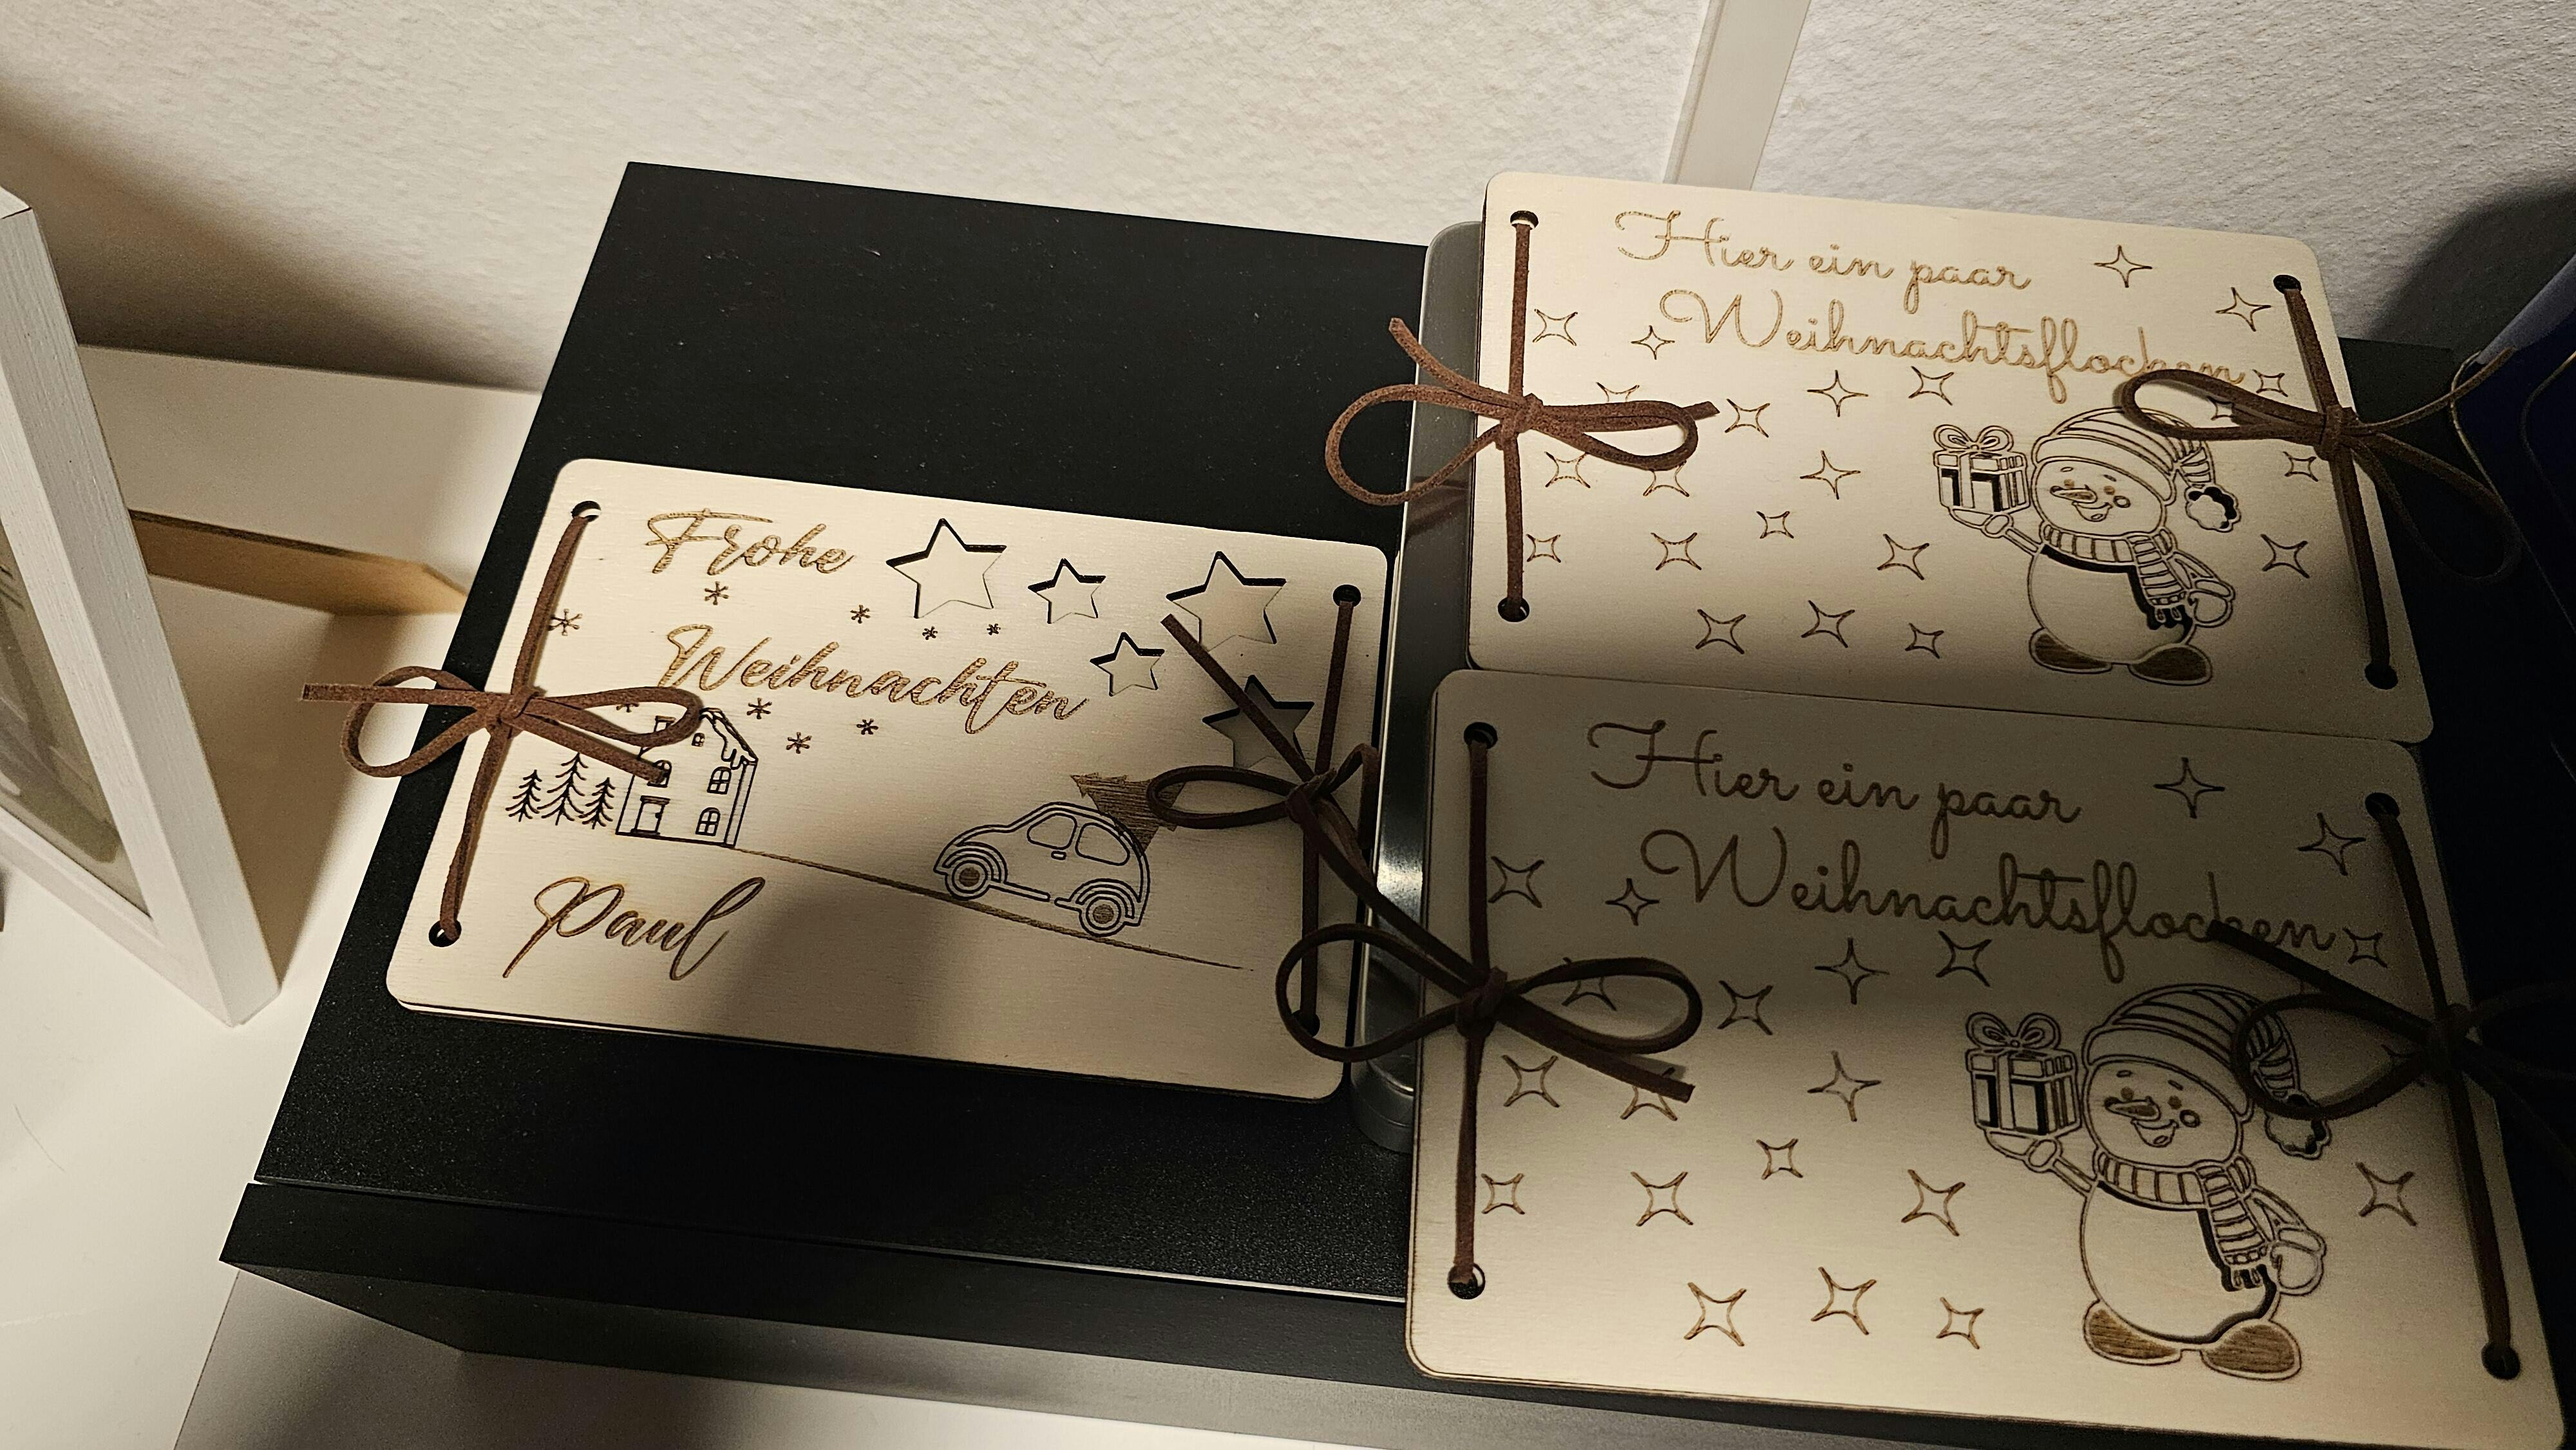 Frohe
Weihnachten
Paul
Hier ein paar
Weihnachtsflocken
Hier ein paar
Weihnachtsflocken